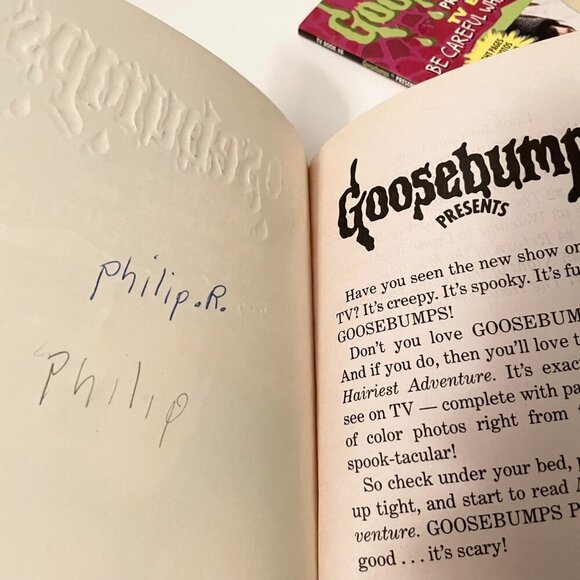 Goosebumps
philip.R.
Philip
Goosebumps
PR
TV B
BE CAREFUL WHA
TV BOOK #8
Goosebump
PRESENTS
Have you seen the new show on
TV? It's creepy. It's spooky. It's fu
GOOSEBUMPS!
Don't you love GOOSEBUM
And if you do, then you'll love t
Hairiest Adventure. It's exac
see on TV — complete with pa
of color photos right from
spook-tacular!
So check under your bed, p
up tight, and start to read M
venture. GOOSEBUMPS P
good . . . it's scary!